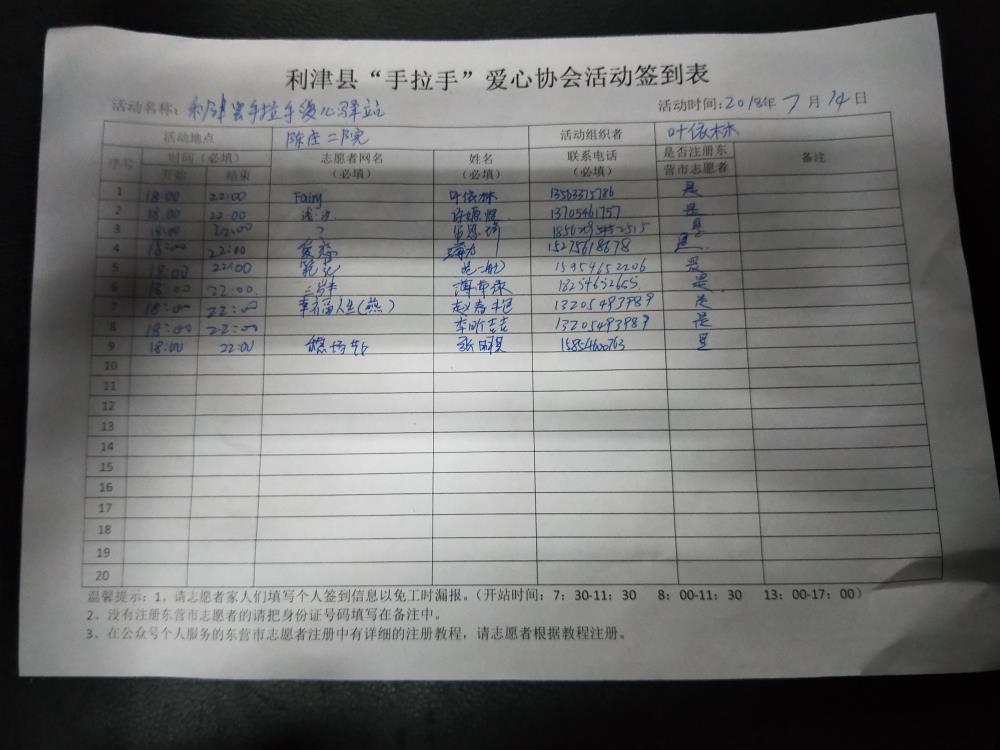 利津县“手拉手”爱心协会活动签到表
活动名称：利津县手拉手爱心驿站 活动时间:2018年7月14日
活动地点 陈庄二院 活动组织者 叶依林
序号 时间（必填） 志愿者网名 姓名 联系电话 是否注册东 备注
开始 结束 （必填） （必填） （必填） 营市志愿者
1 18:00 22:00 Fairy 叶依林 13563375786 是
2 18:00 22:00 13705461757 是
3 18:00 22:00 ? 是
4 18:00 22:00 15275618678 是
5 18:00 22:00 15954652206 是
6 18:00 22:00 18254652655 是
7 18:00 22:00 幸福人生(燕) 13205493989 是
8 18:00 22:00 李昕 13205493989 是
9 18:00 22:00 15854600763 是
10
11
12
13
14
15
16
17
18
19
20
温馨提示：1、请志愿者家人们填写个人签到信息以免工时漏报。（开站时间：7：30-11：30 8：00-11：30 13：00-17：00）
2、没有注册东营市志愿者的请把身份证号码填写在备注中。
3、在公众号个人服务的东营市志愿者注册中有详细的注册教程，请志愿者根据教程注册。